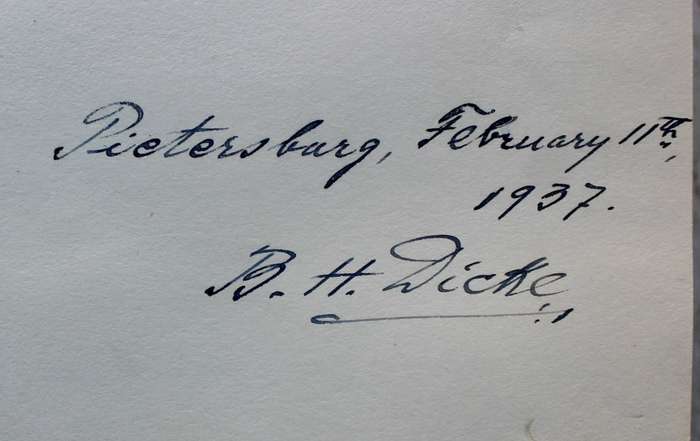 Pietersburg, February 11th,
1937.
B. H. Dicke